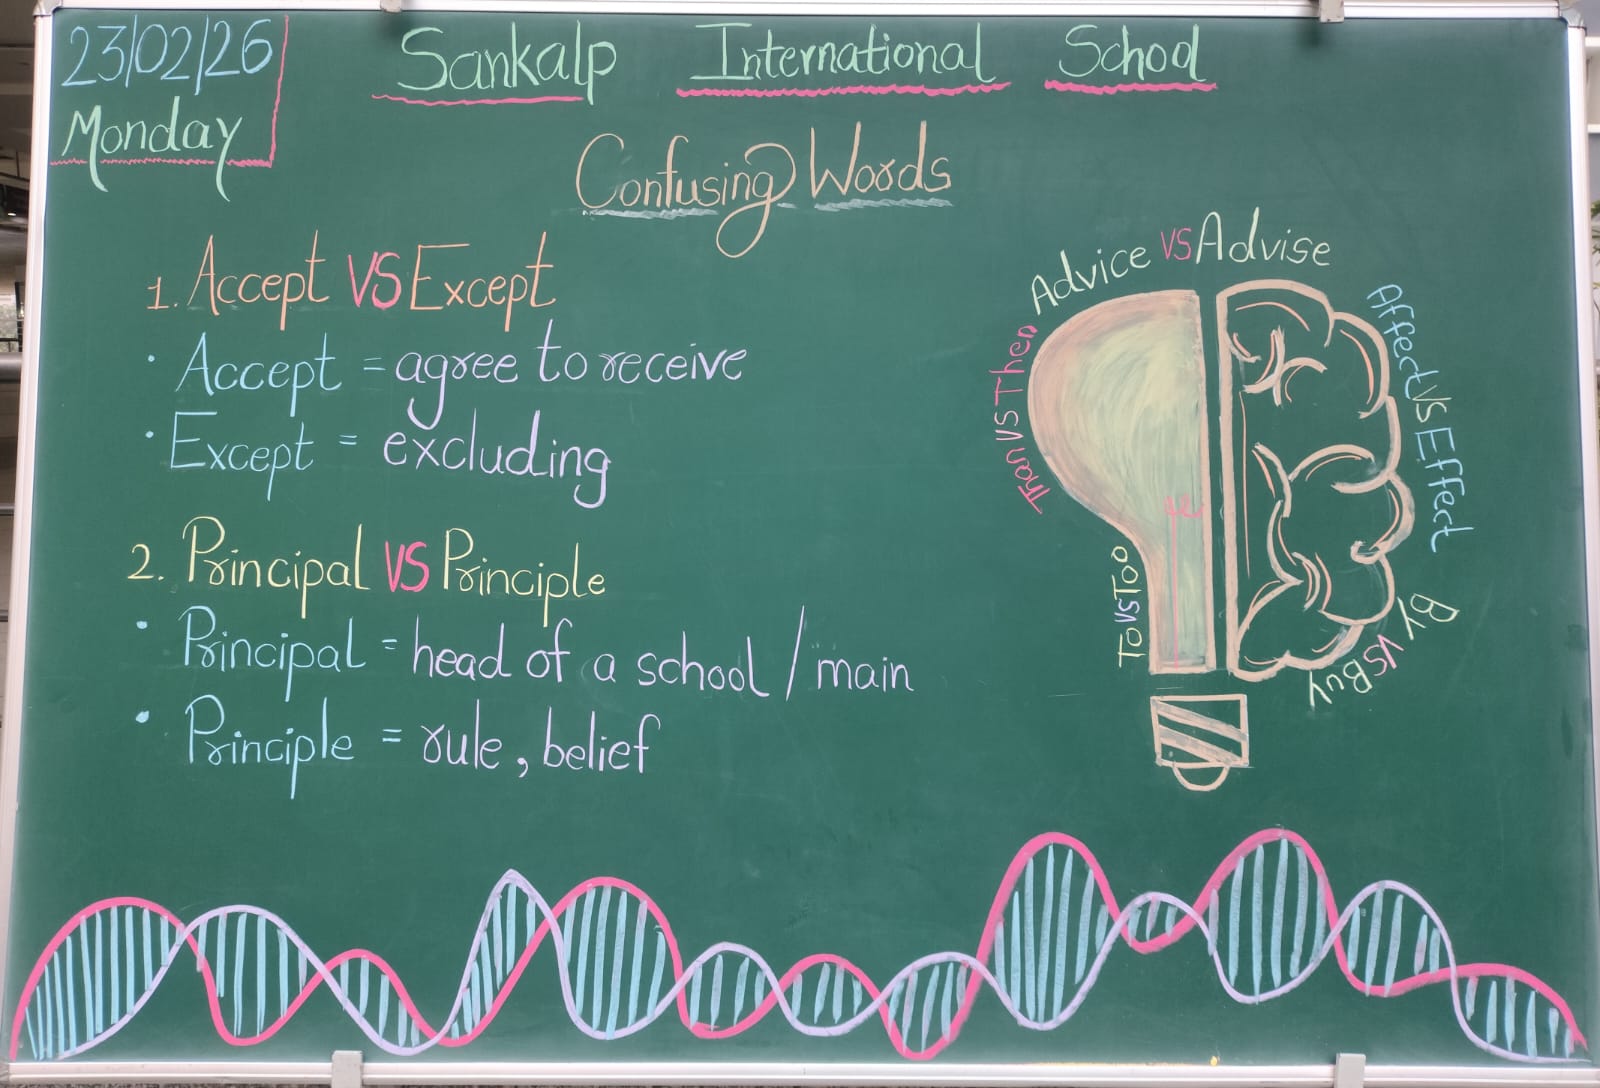 23/02/26
Monday
Sankalp International School
Confusing Words
1. Accept VS Except
· Accept = agree to receive
· Except = excluding
2. Principal VS Principle
· Principal = head of a school / main
· Principle = rule, belief
Advice VS Advise
Affect VS Effect
By VS Buy
Than VS Then
To VS Too